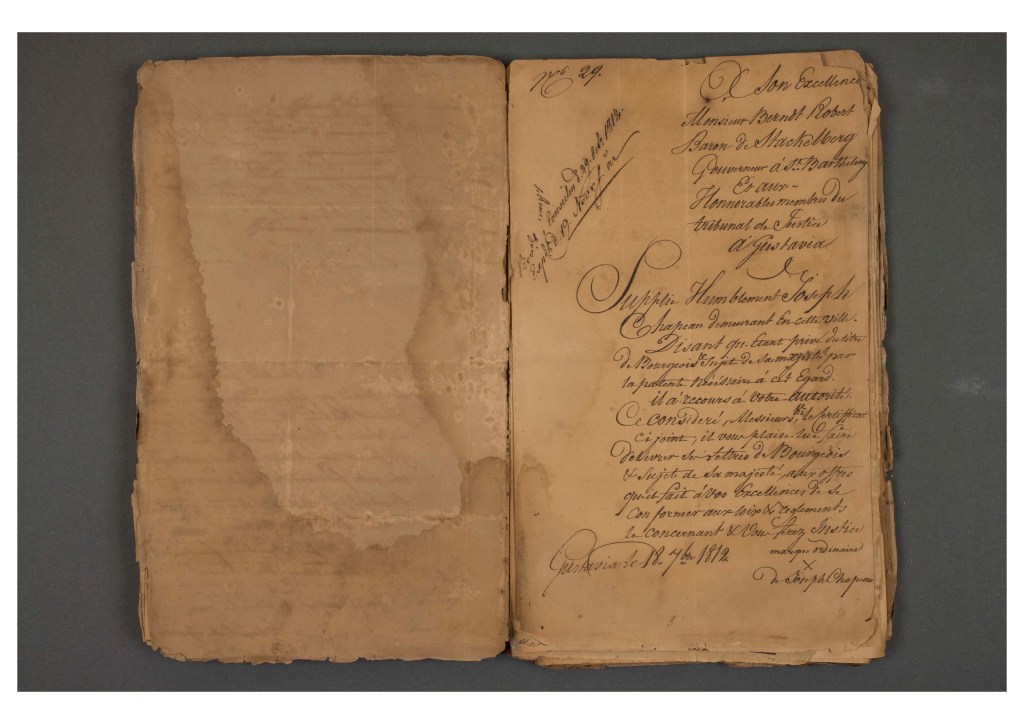 No 29.
A Son Excellence
Monsieur Berndt Robert
Baron de Stackelberg
Gouverneur à St. Barthelemy
Et aux
Honnorables membres du
tribunal de Justice
à Gustavia
Supplie Humblement Joseph
Chapeau demeurant En cette ville.
Disant qu'Etant privé du titre
de Bourgeois & Sujet de sa majesté par
la patente Nécéssaire à cet Egard.
il a recours à Votre autorité.
Ce consideré, Messieurs, Vu le Certifficat
ci joint, il vous plaise lui faire
delivrer se lettres de Bourgeois
& Sujet de sa majesté, aux offres
qu'il fait à Vos Excellences de se
conformer aux loix & reglements
le concernant & Vous ferez Justice
Gustavia le 18. 7bre 1812
marque ordinaire
X
de Joseph Chapeau